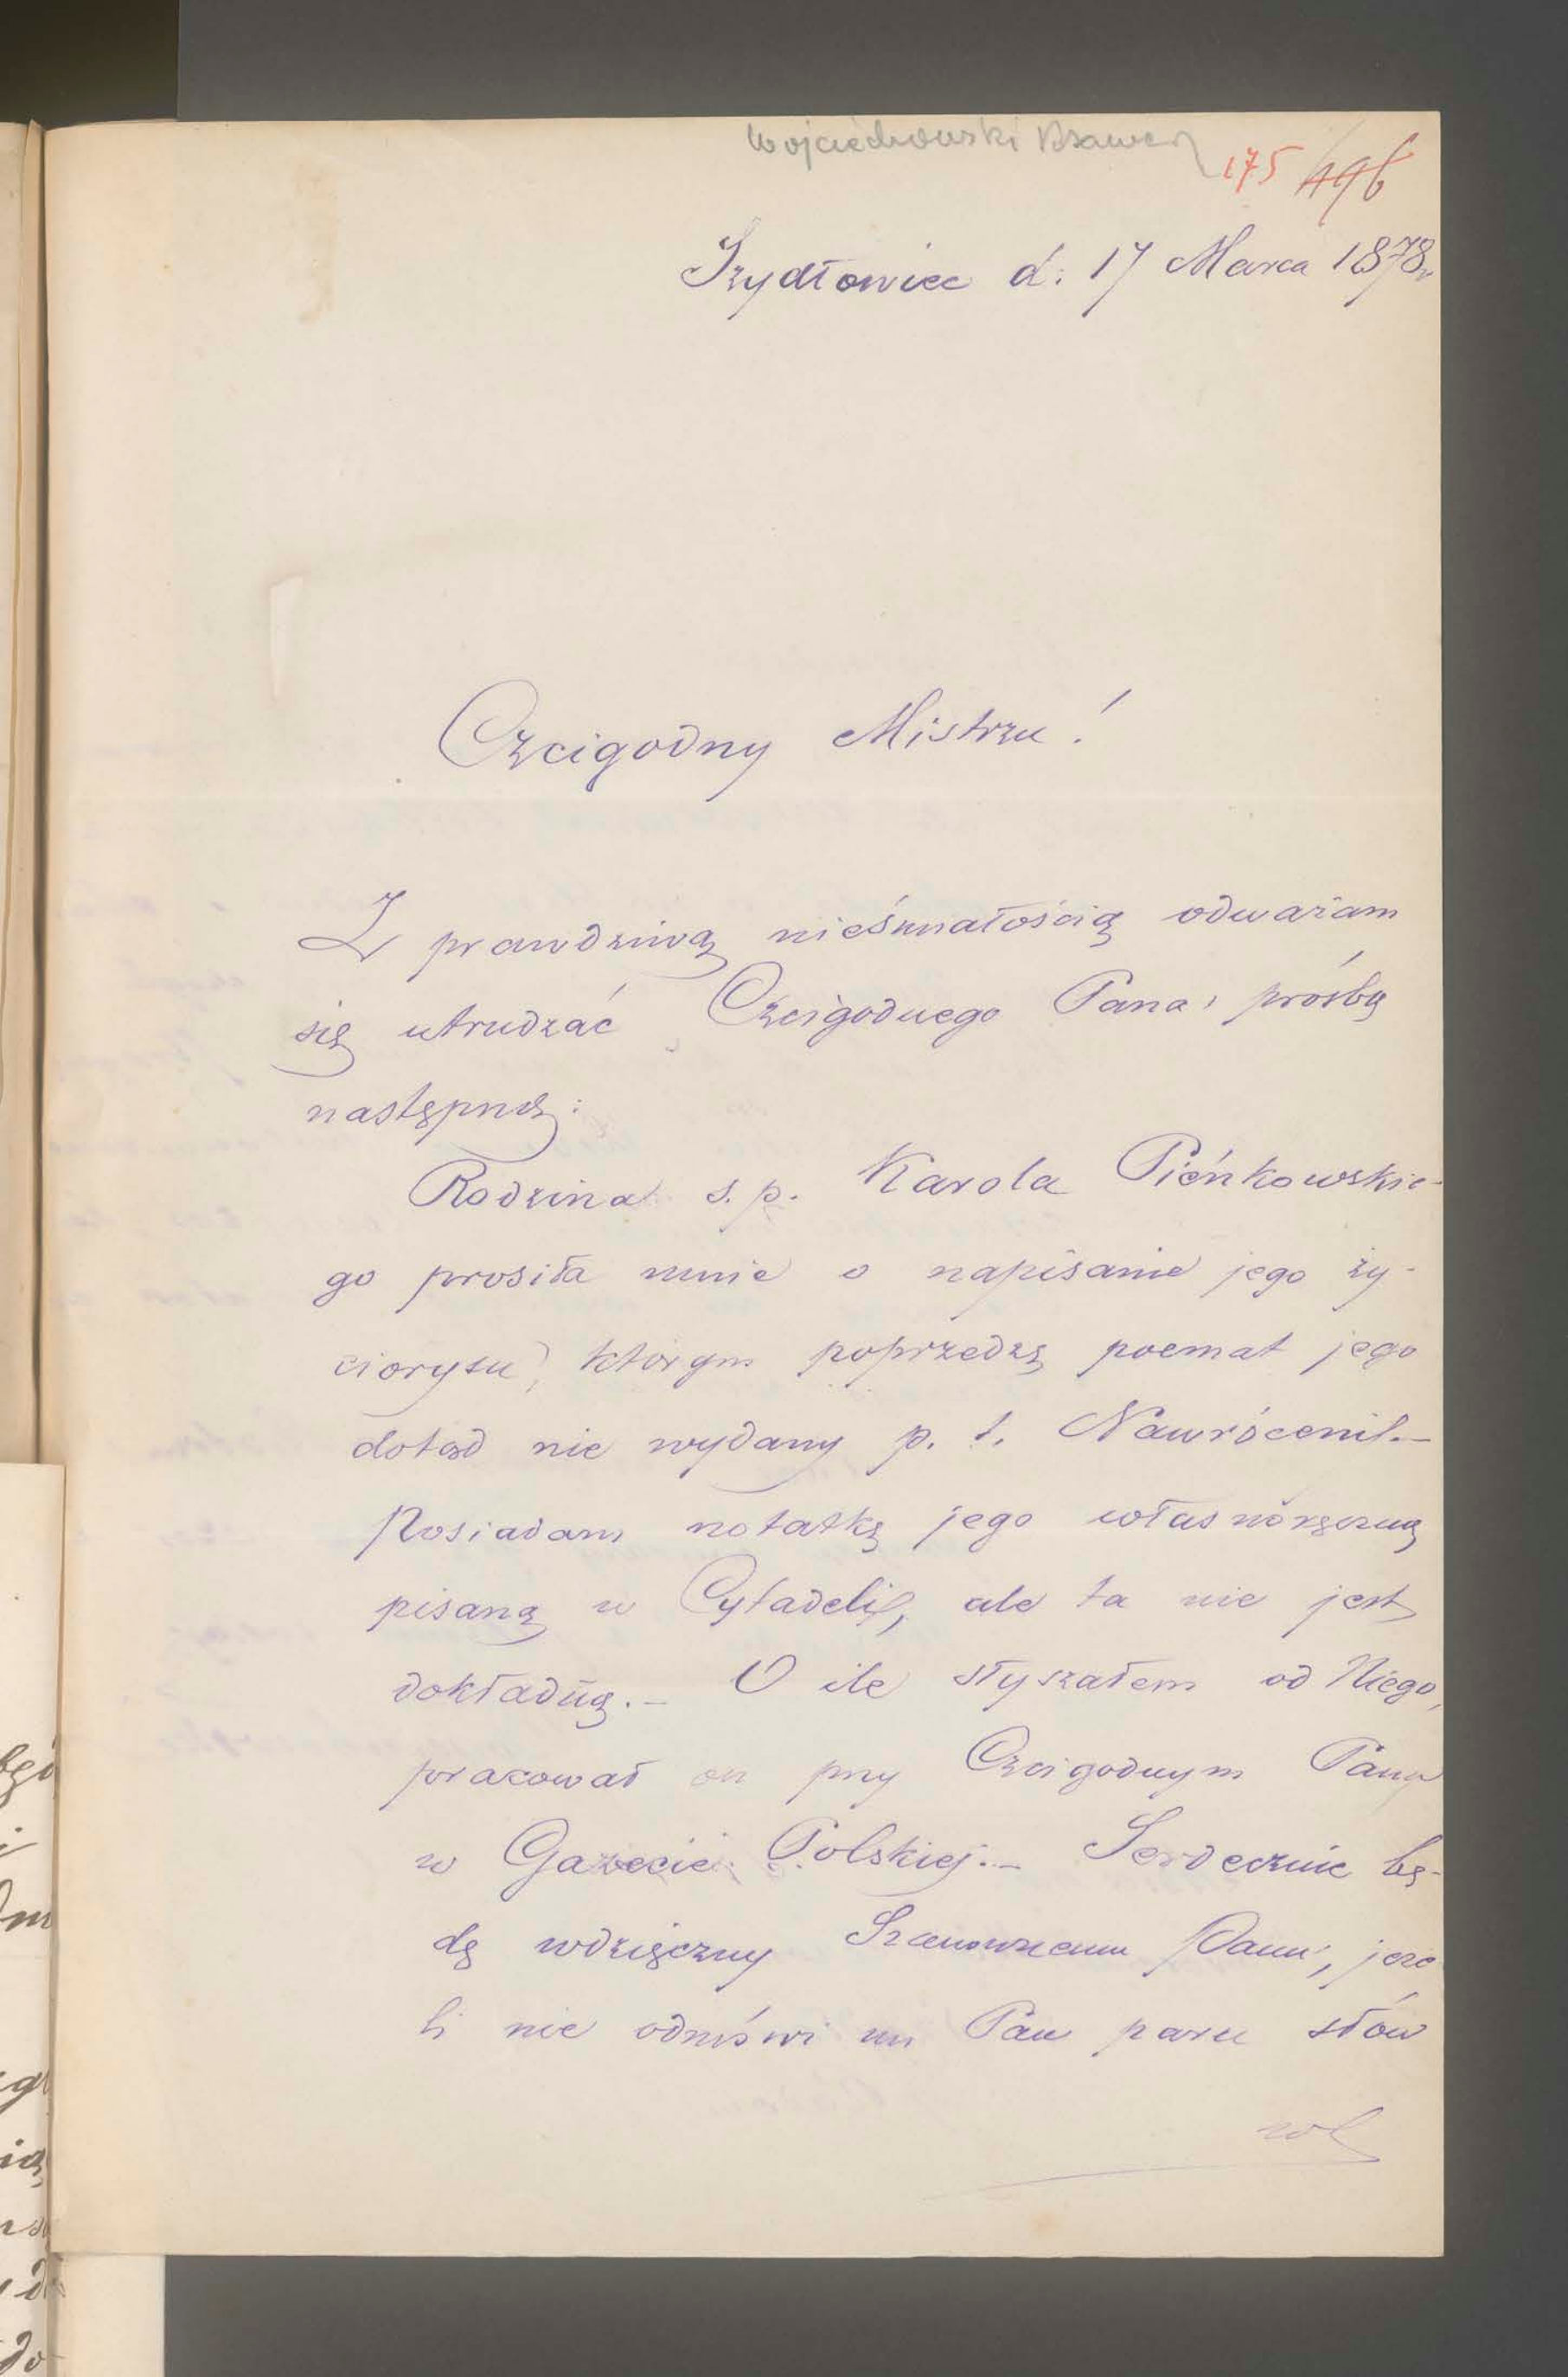 Wojciechowski Ksawery
175 496
Szydłowiec d: 17 Marca 1878r
Czcigodny Mistrzu!
Z prawdziwą nieśmiałością odważam
się utrudzać Czcigodnego Pana, prośbą
następną:
Rodzina ś.p. Karola Pieńkowskie-
go prosiła mnie o napisanie jego ży-
ciorysu, którym poprzedzą poemat jego
dotąd nie wydany p. t. Nawróceni.—
Posiadam notatkę jego własnoręczną
pisaną w Cytadeli, ale ta nie jest
dokładną.— O ile słyszałem od Niego,
pracował on przy Czcigodnym Panu
w Gazecie Polskiej.— Serdecznie bę-
dę wdzięczny Szanownemu Panu, jeże
li nie odmówi mi Pan paru słów